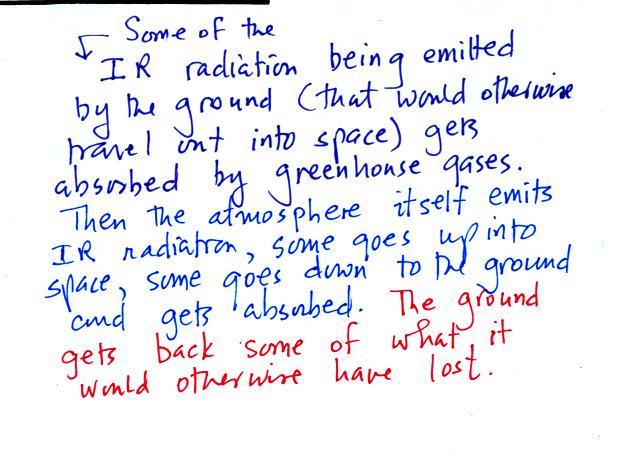 Some of the
IR radiation being emitted
by the ground (that would otherwise
travel out into space) gets
absorbed by greenhouse gases.
Then the atmosphere itself emits
IR radiation, some goes up into
space, some goes down to the ground
and gets absorbed. The ground
gets back some of what it
would otherwise have lost.